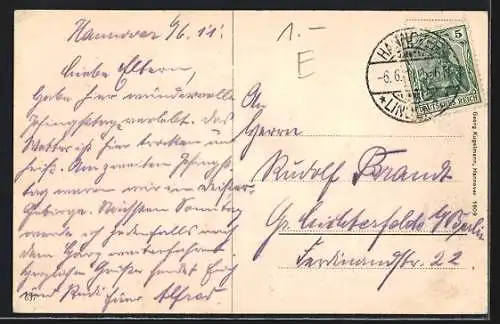 Hannover 6/6. 11.
Liebe Eltern,
Habe hier wundervolle
Pfingsttage verlebt. Das
Wetter ist hier trocken und
heiß. Am zweiten Pfingst-
tag waren wir im Deister-
Gebirge. Nächsten Sonntag
werde ich jedenfalls nach
dem Harz
Herzlichen Grüßen sendet Euch
und Rudi Euer Alfred.
1.-
E
An
Herrn
Rudolf Brandt
Gr. Lichterfelde b/Berlin
Ferdinandstr. 22.
HANNOVER
-6.6.
* LINDEN
5
DEUTSCHES REICH
Georg Kugelmann, Hannover 1909